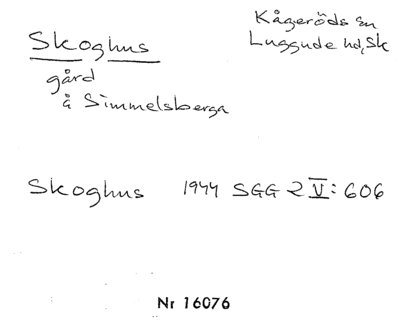 Skoghus
Kågeröds sn
Luggude hd, Sk
gård
å Simmelsberga
Skoghus 1944 SGG 2 V: 606
Nr 16076